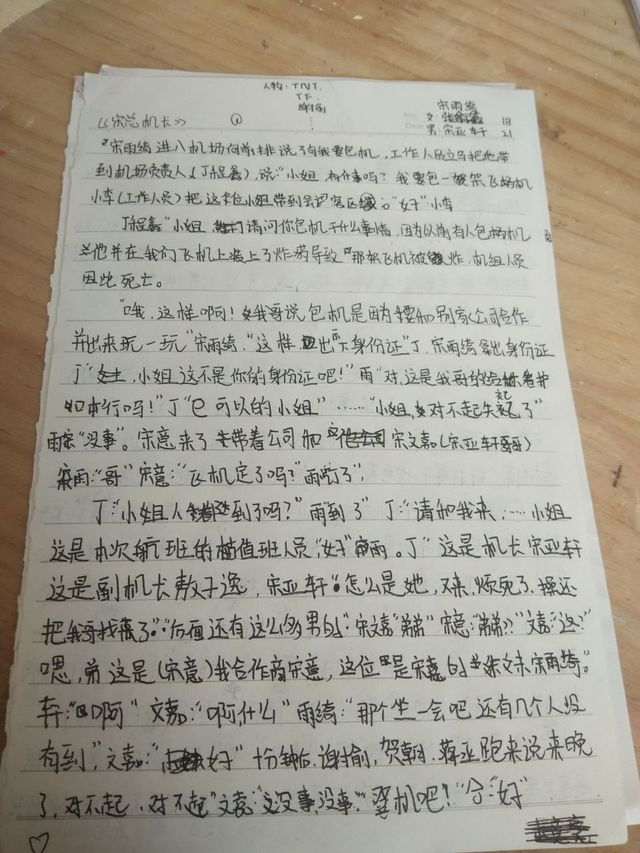 人物：TNT.
TF.
《宋总机长》 ① 宋雨绮
女： 18
男：宋亚轩 21
宋雨绮进入机场向前排说了句我要包机，工作人员立马把她带
到机场负责人(丁程鑫)，说“小姐，有什事吗？我要包一架飞机
小李(工作人员)把这位小姐带到会客区。”“好”小李
丁程鑫“小姐 请问你包机干什么事情，因为以前有人包机
并在我们飞机上装上了炸药导致 那架飞机被炸，机组人员
因此死亡。
“哦，这样啊！我哥说包机是因为要和别家公司合作
并出来玩一玩”宋雨绮，“这样 出示下身份证”丁，宋雨绮拿出身份证
丁“小姐这不是你的身份证吧！”雨“对，这是我哥的 护
本行吗！”丁“已可以的小姐”……“小姐，对不起失礼了”
雨绮“没事”。宋意来了带着公司和 宋文嘉(宋亚轩哥)
雨：“哥”宋意：“飞机定了吗？”雨“订了”，
丁“小姐人到了吗？”雨“到了”丁：“请和我来，……小姐
这是本次航班的值班人员，“好”雨。丁“这是机长宋亚轩
这是副机长敖子逸，宋亚轩“怎么是她，又来，烦死了，还
把我哥找来了”“后面还有这么多男的”宋文嘉“弟弟”宋意：“弟弟？”文嘉：“这？”
嗯，弟这是(宋意)我合作商宋意，这位是宋意的妹妹宋雨绮”
轩：“啊”文嘉：“啊，什么”雨绮：“那个坐一会吧，还有几个人没
有到”，文嘉：“好”十分钟后，谢俞，贺朝，蒋亚跑来说来晚
了，对不起，对不起”文嘉“没事，没事”“登机吧！”“好”